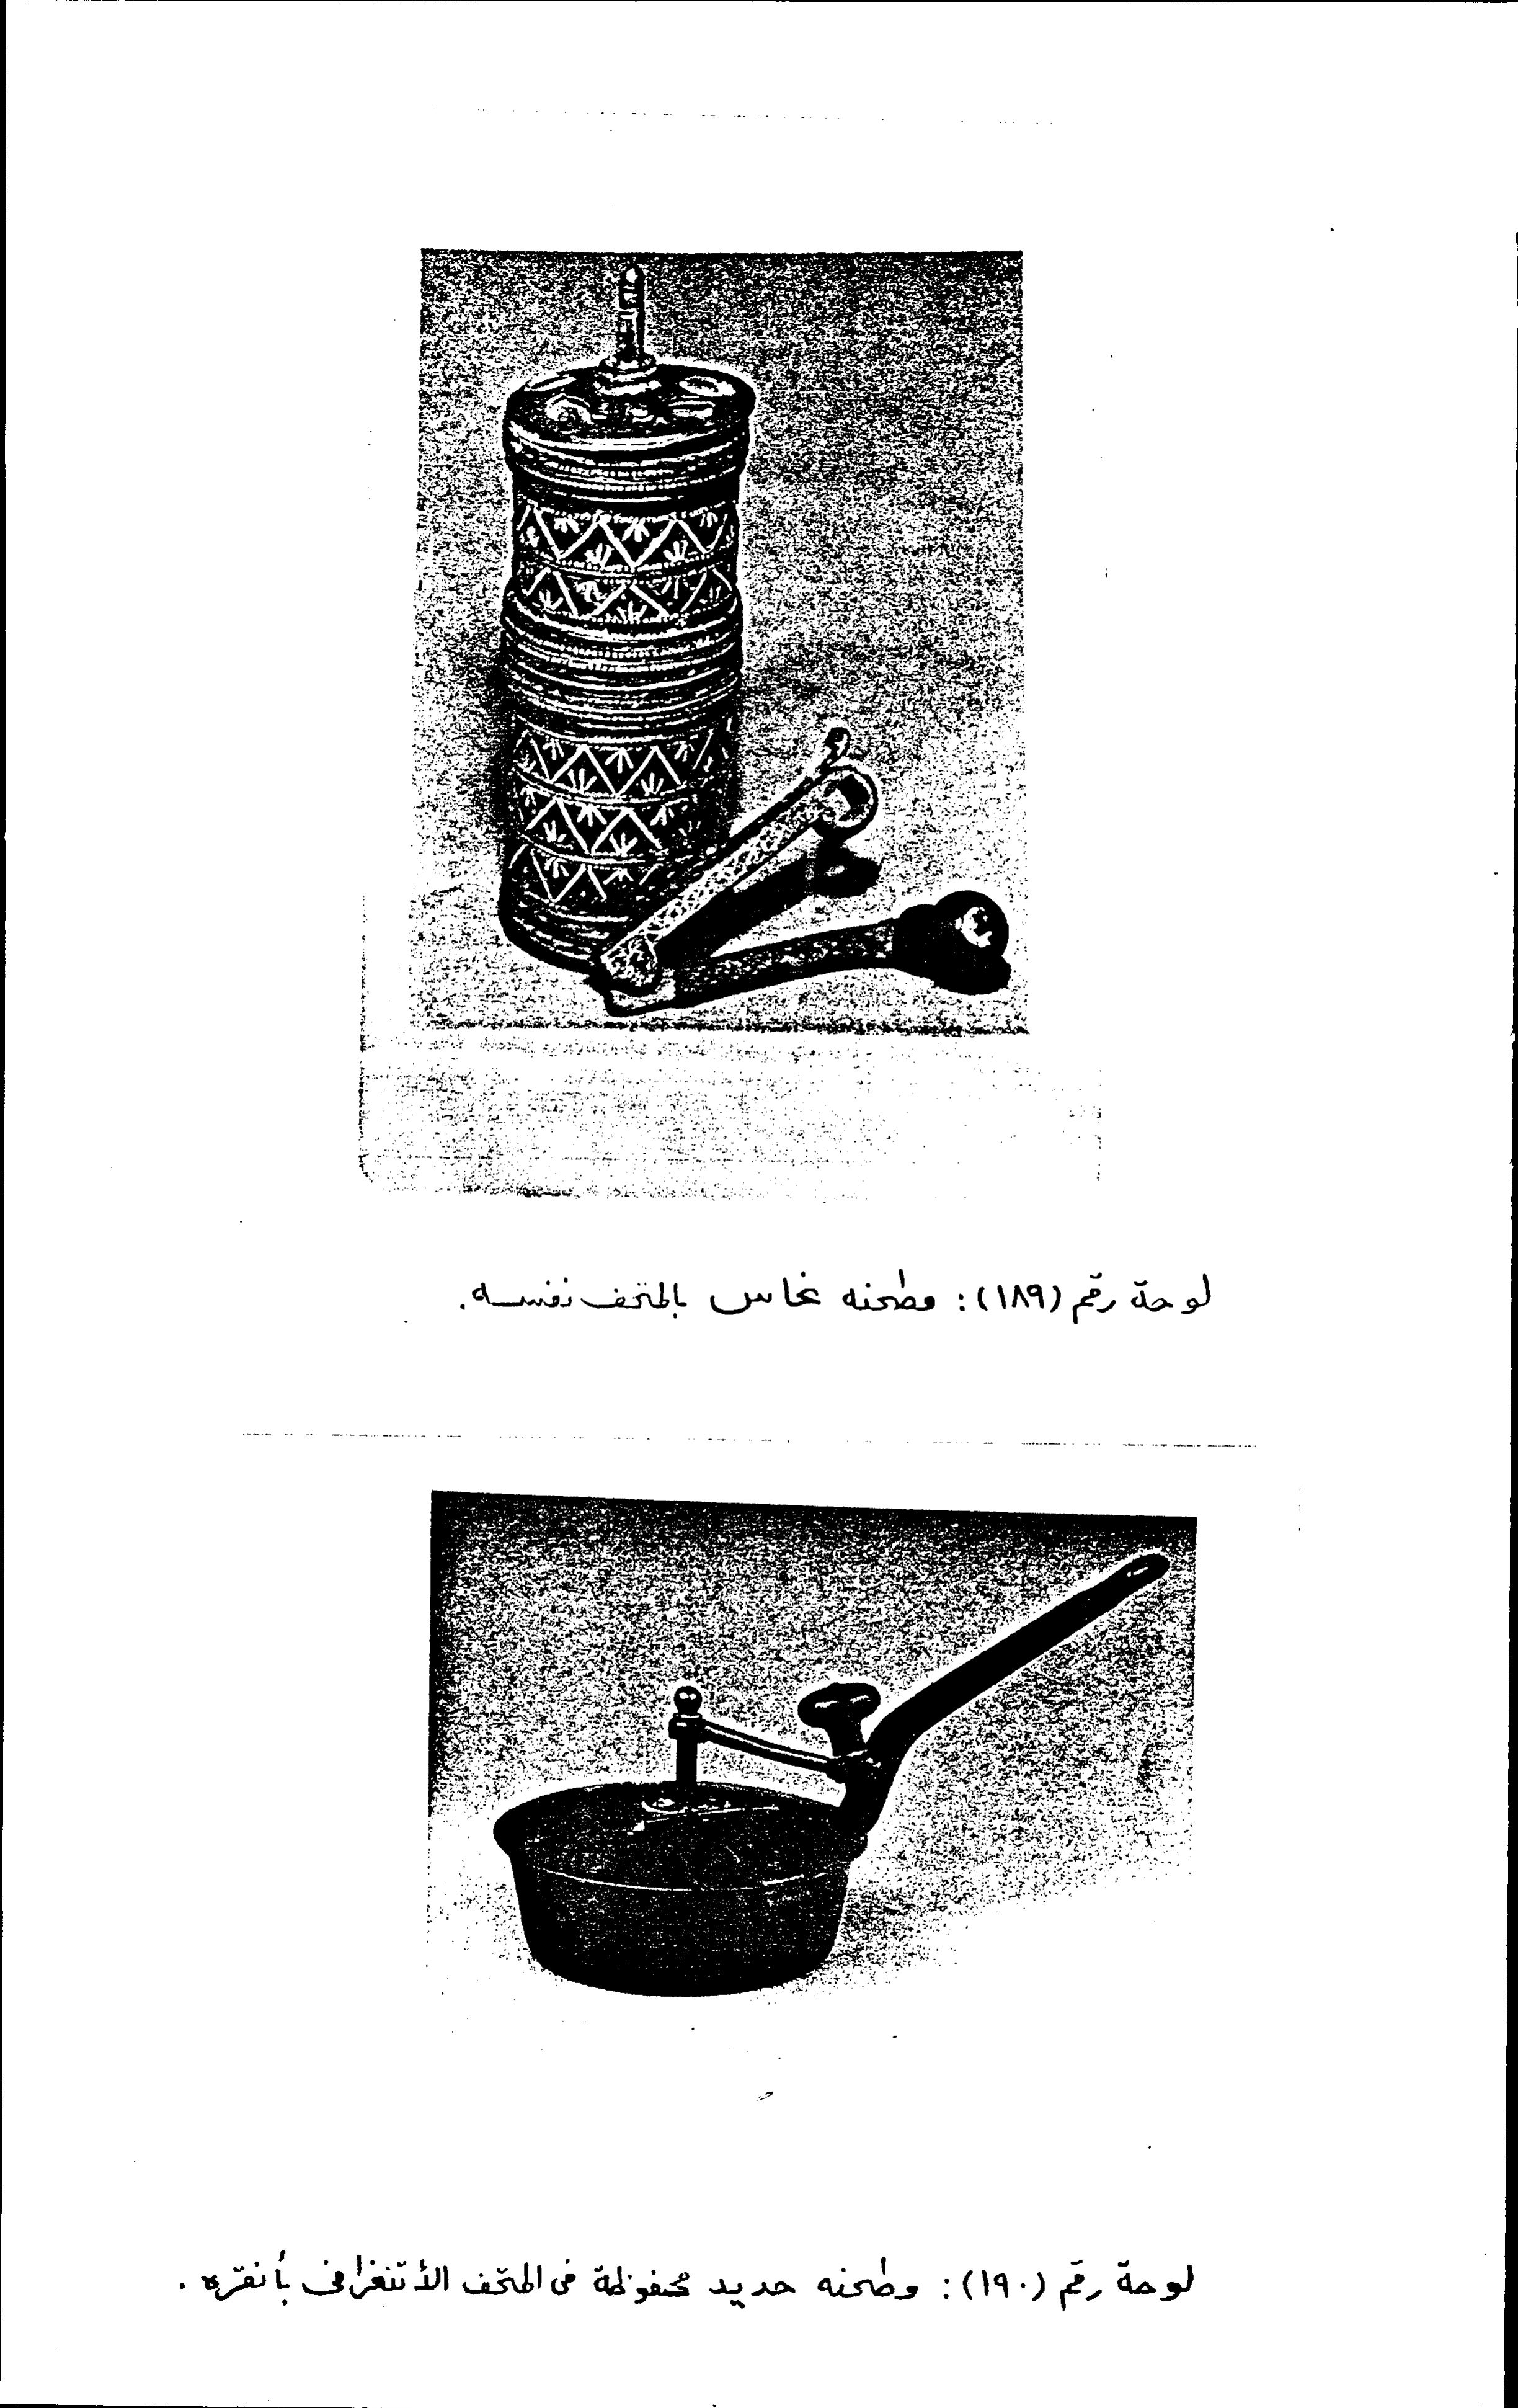 لوحة رقم (١٨٩): مطحنه نحاس بالمتحف نفسه.
لوحة رقم (١٩٠): مطحنه حديد محفوظة فى المتحف الأتنغرافى بأنقره.